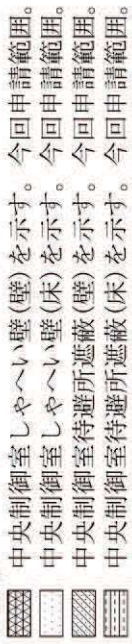 中央制御室しゃへい壁(壁)を示す。今回申請範囲。
中央制御室しゃへい壁(床)を示す。今回申請範囲。
中央制御室待避所遮蔽(壁)を示す。今回申請範囲。
中央制御室待避所遮蔽(床)を示す。今回申請範囲。